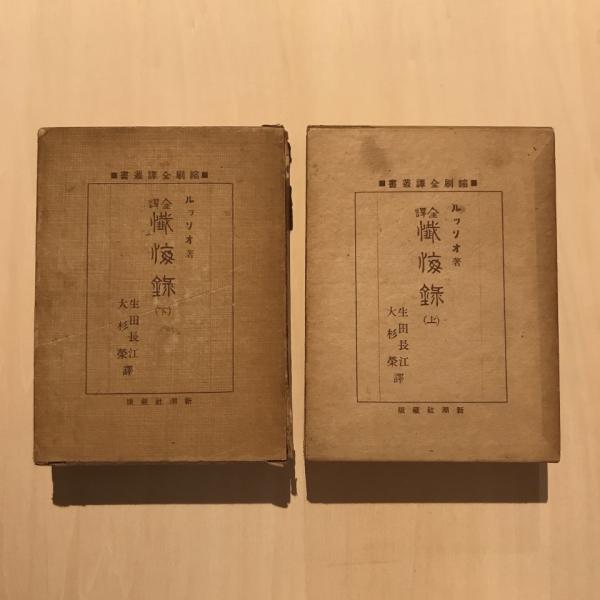 縮刷全譯叢書
ルッソオ著
全譯
懺悔錄
(上)
生田長江
大杉榮
譯
新潮社藏版
縮刷全譯叢書
ルッソオ著
全譯
懺悔錄
(下)
生田長江
大杉榮
譯
新潮社藏版